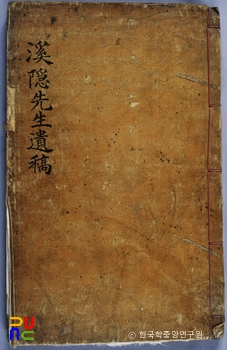 溪隠先生遺稿
PUNC
© 한국학중앙연구원